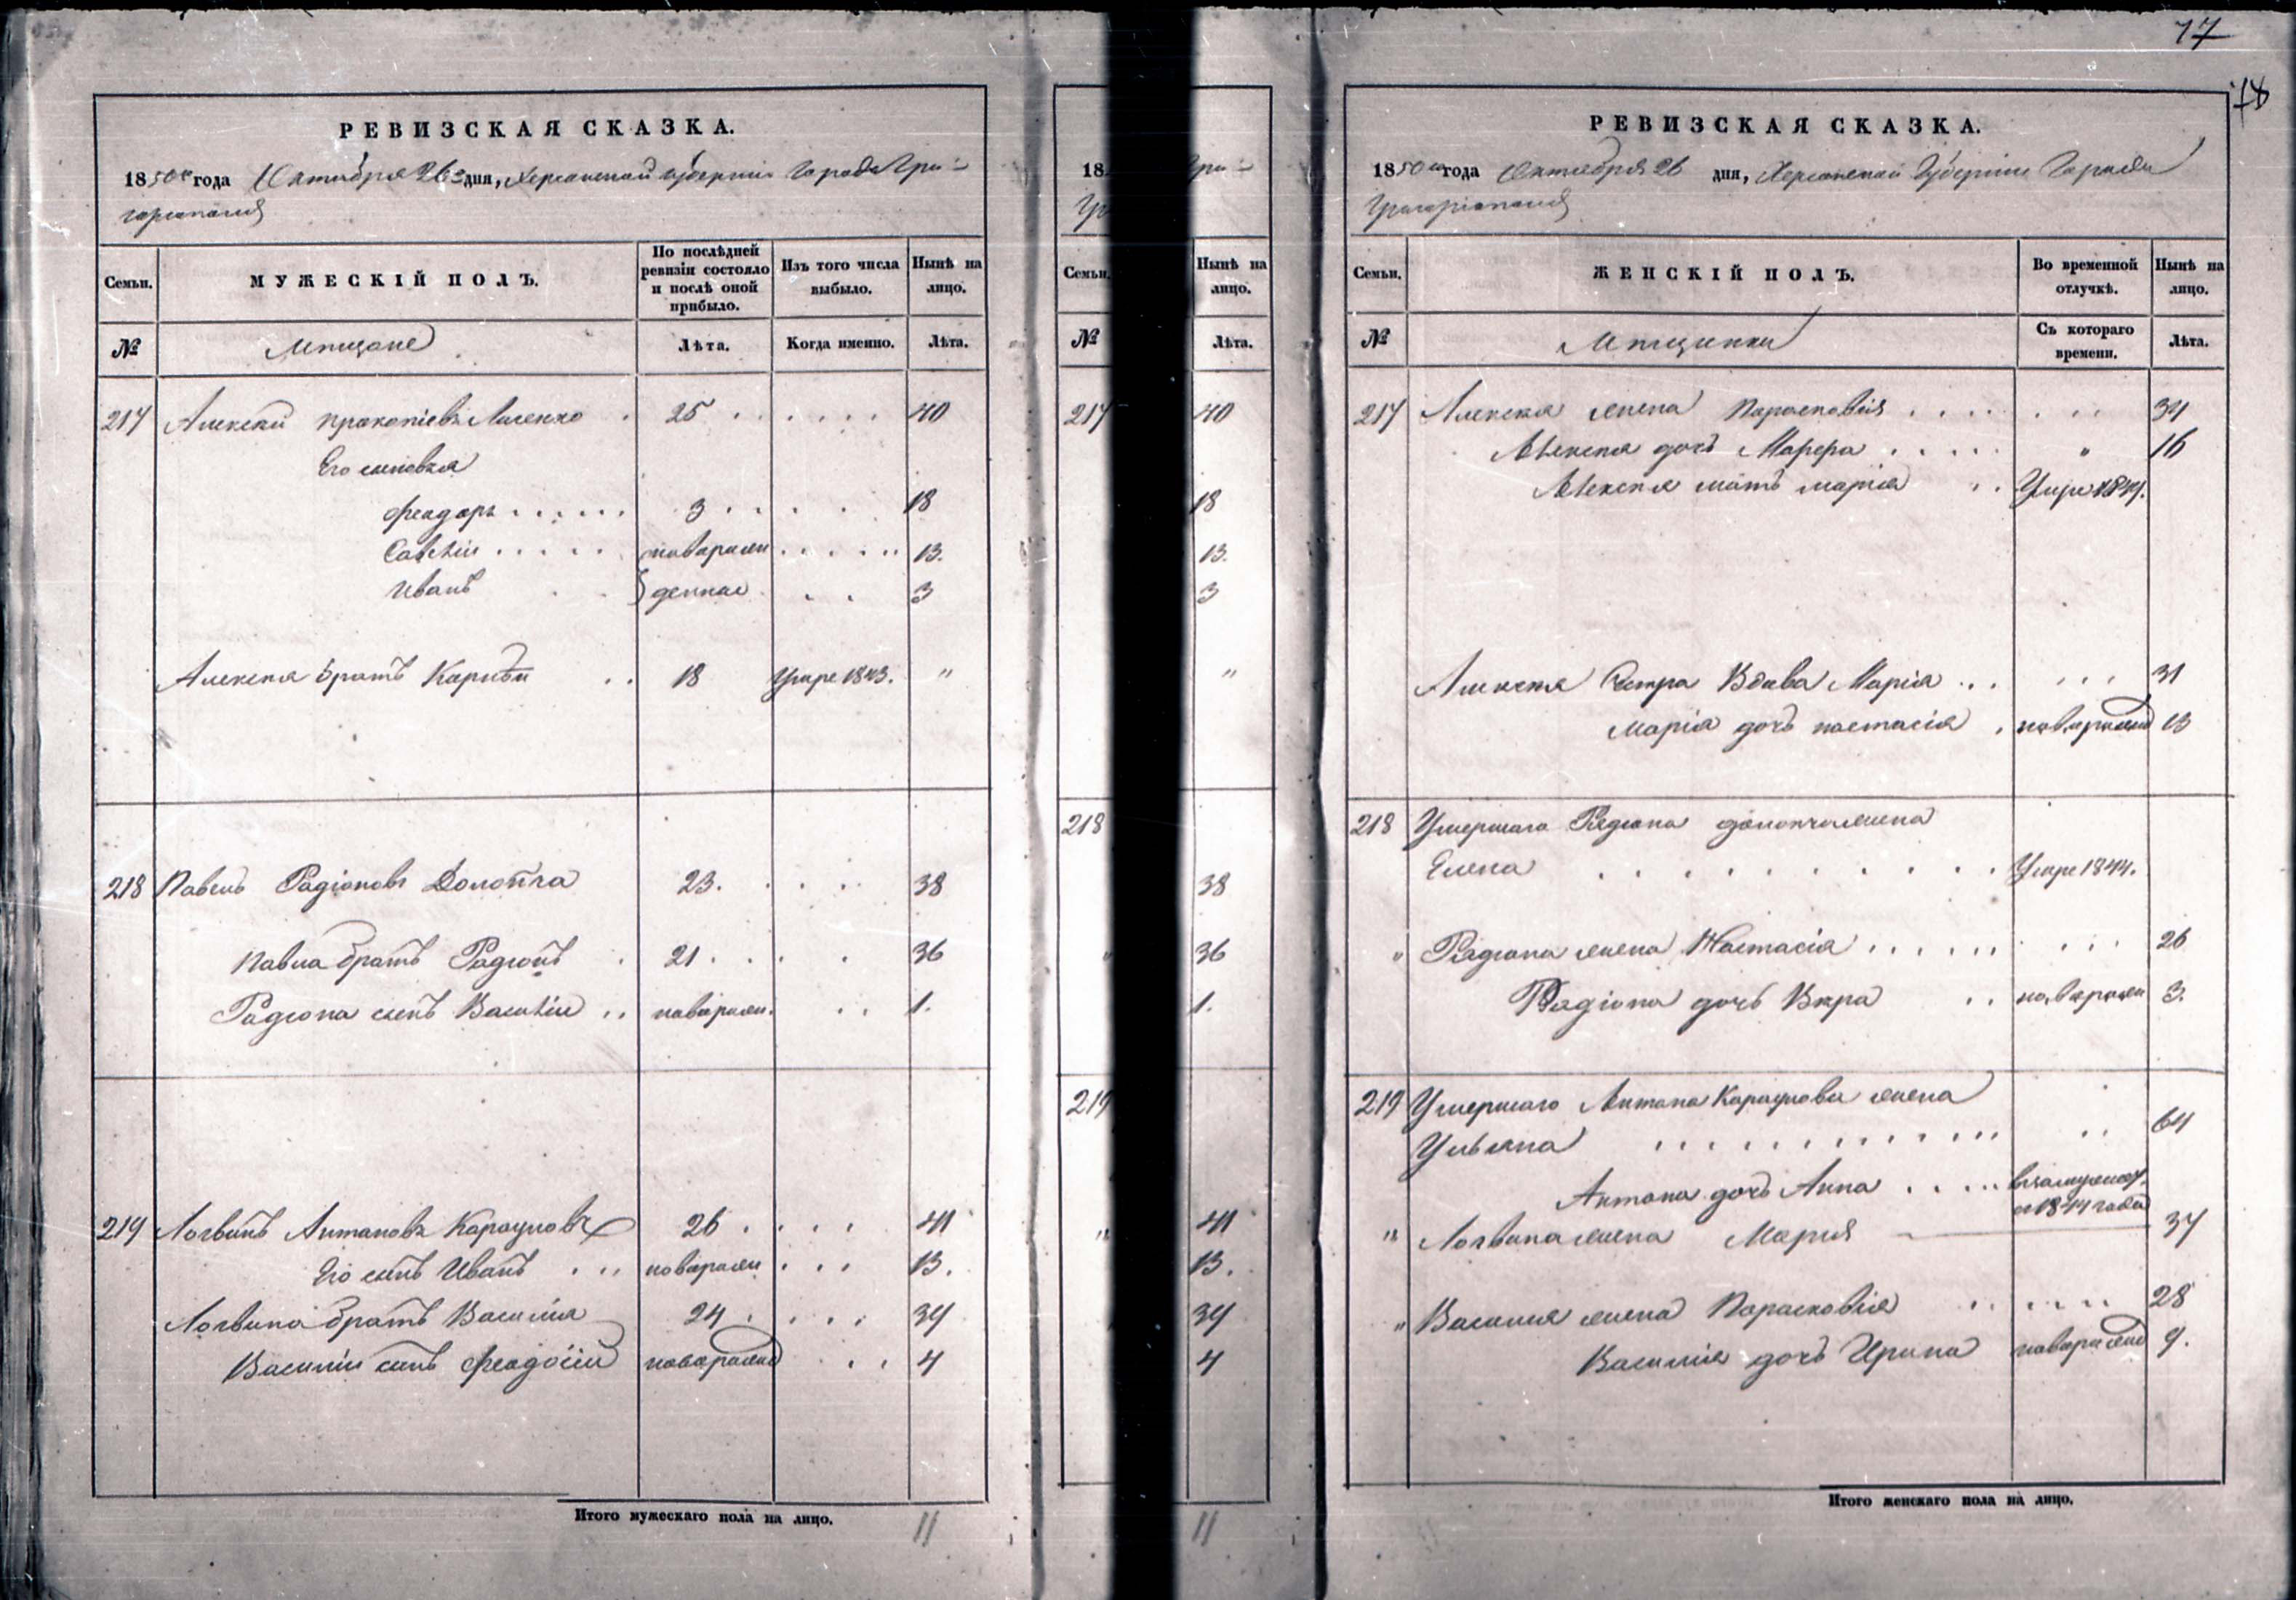 17
78
РЕВИЗСКАЯ СКАЗКА.
1850го года Октября 26го дня, Херсонской губерніи Города Гри-
горіополя
Семьи.
МУЖЕСКІЙ ПОЛЪ.
По послѣдней ревизіи состояло и послѣ оной прибыло.
Изъ того числа выбыло.
Нынѣ на лицо.
№
Мѣщане
Лѣта.
Когда именно.
Лѣта.
217 Алексѣй Прокопіевъ 25 40
Его сыновья
Феодоръ 3 18
Савелій новорож 13.
Иванъ денные 3
Алексѣя братъ Корнѣй 18 Умре 1843. "
218 Павелъ Радіоновъ Долопча 23. 38
Павла братъ Радіонъ 21 36
Радіона сынъ Василій новорож. 1.
219 Логвинъ Антоновъ Караулов 26 41
Его сынъ Иванъ новорож 13.
Логвина братъ Василія 24 39
Василія сынъ Феодосій новорожд 4
Итого мужескаго пола на лицо. 11
18
Гри-
Гр
Семьи.
Нынѣ на лицо.
№
Лѣта.
217 40
18
13.
3
"
218
38
" 36
1.
219
" 41
13.
39
4
11
РЕВИЗСКАЯ СКАЗКА.
1850го года Октября 26 дня, Херсонской Губерніи Города
Григоріополя
Семьи.
ЖЕНСКІЙ ПОЛЪ.
Во временной отлучкѣ.
Нынѣ на лицо.
№
Мѣщанки
Съ котораго времени.
Лѣта.
217 Алексѣя жена Парасковія 34
Алексѣя дочь 16
Алексѣя мать Марія Умре
Алексѣя Сестра Вдова Марія 31
Марія дочь Настасія новорожд 13
218 Умершаго Радіона Долопча жена
Елена Умре 1844.
" Радіона жена Настасія 26
Радіона дочь Вѣра новорож 3.
219 Умершаго Антона Караулова жена
Ульяна 64
Антона дочь Анна в замуже
1844 года
" Логвина жена Марія 37
" Василія жена Парасковія 28
Василія дочь Ирина новорожд 9.
Итого женскаго пола на лицо.